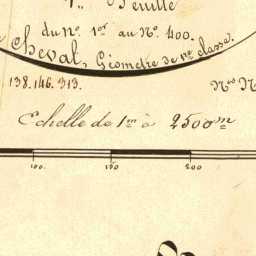 Feuille
du N.º 1.er au N.º 400.
Cheval, Géomètre de 1.re classe.
138.146.313.
Echelle de 1.m à 2500m
100. 150 200